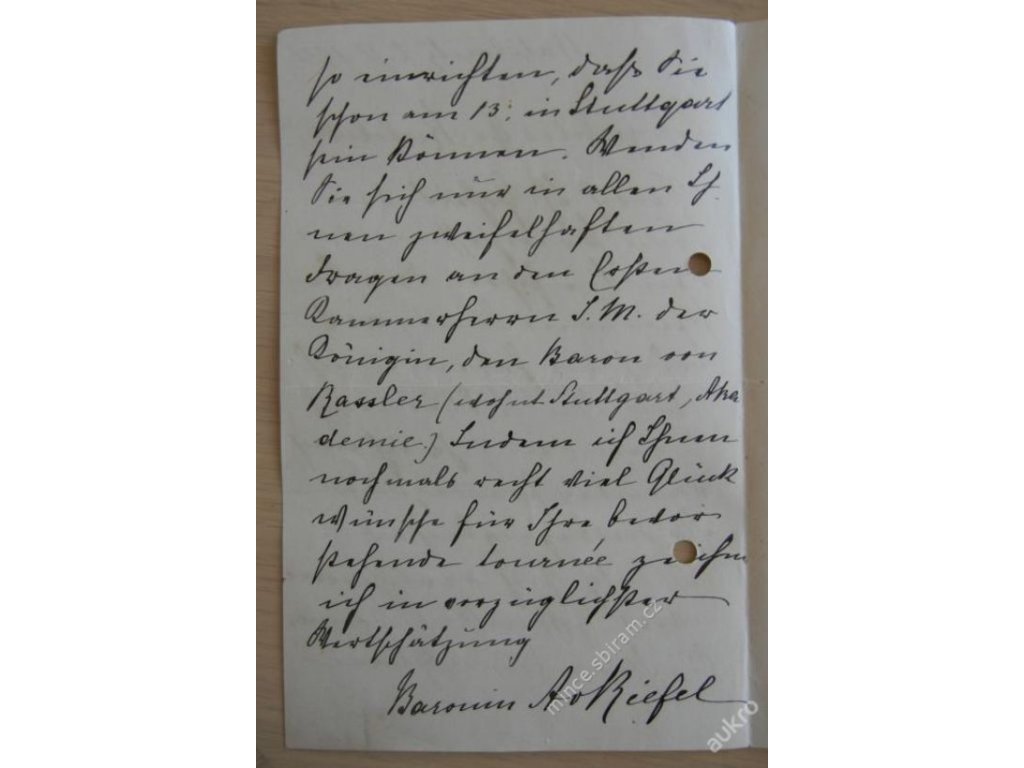 so einrichten, daß Sie
schon am 13. in Stuttgart
sein können. Wenden
Sie sich nur in allen Ih
nen zweifelhaften
Fragen an den Ersten
Kammerherrn I. M. der
Königin, den Baron von
Rassler (wohnt Stuttgart, Aka
demie.) Indem ich Ihnen
nochmals recht viel Glück
wünsche für Ihre bevor
stehende tournée zeichne
ich in vorzüglichster
Wertschätzung
Baronin A v Riefel
mince.sbiram.cz
aukro